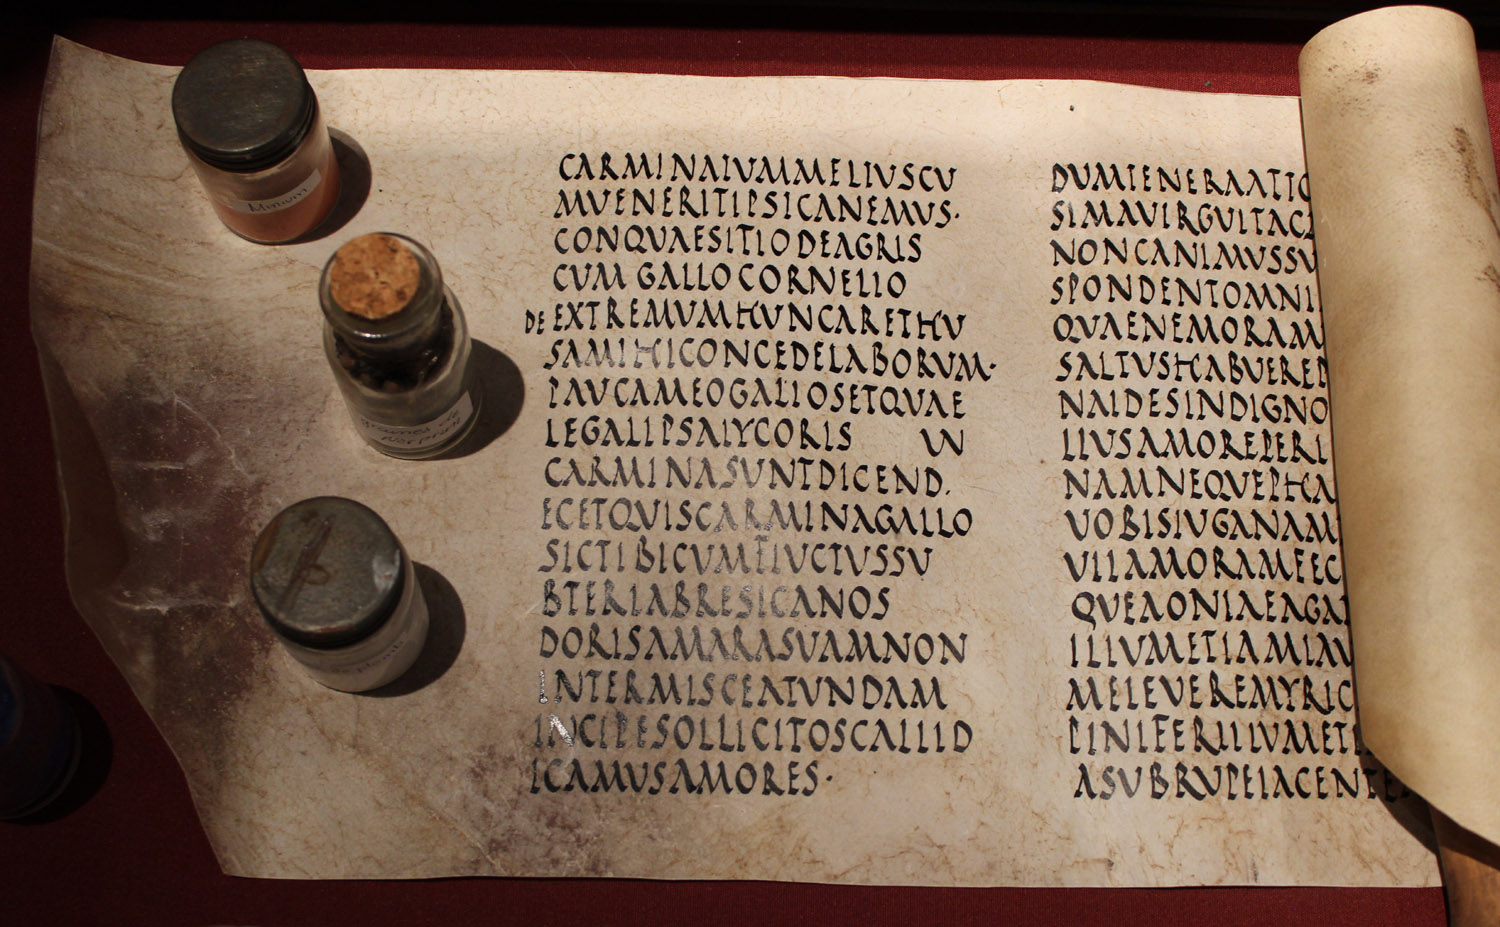 Minium
graines de
nerprun
CARMINATVMMELIVSCV
MVENERITIPSICANEMVS·
CONQVAESITIODEAGRIS
CVM GALLO CORNELIO
DE EXTREMVMHVNCARETHV
SAMIHICONCEDELABORVM·
PAVCAMEOGALLOSETQVAE
LEGATIPSALYCORIS VN
CARMINASVNTDICEND.
ECETQVISCARMINAGALLO
SICTIBICVMFLVCTVSSV
BTERLABRESICANOS
DORISAMARASVAMNON
INTERMISCEATVNDAM
INCIPESOLLICITOSCALLID
ICAMVSAMORES·
DVMTENERAATTO
SIMAVIRGVLTACA
NONCANIMVSSV
SPONDENTOMNI
QVAENEMORAM
SALTVSHABVEREP
NAIDESINDIGNO
LLVSAMOREPERI
NAMNEQVEPHA
VOBISIVGANAM
VLLAMORAMFEC
QVEAONIAEAGA
ILLVMETIAMLAV
MFLEVEREMYRIC
PINIFERILLVMETI
ASVBRVPEIACENTE